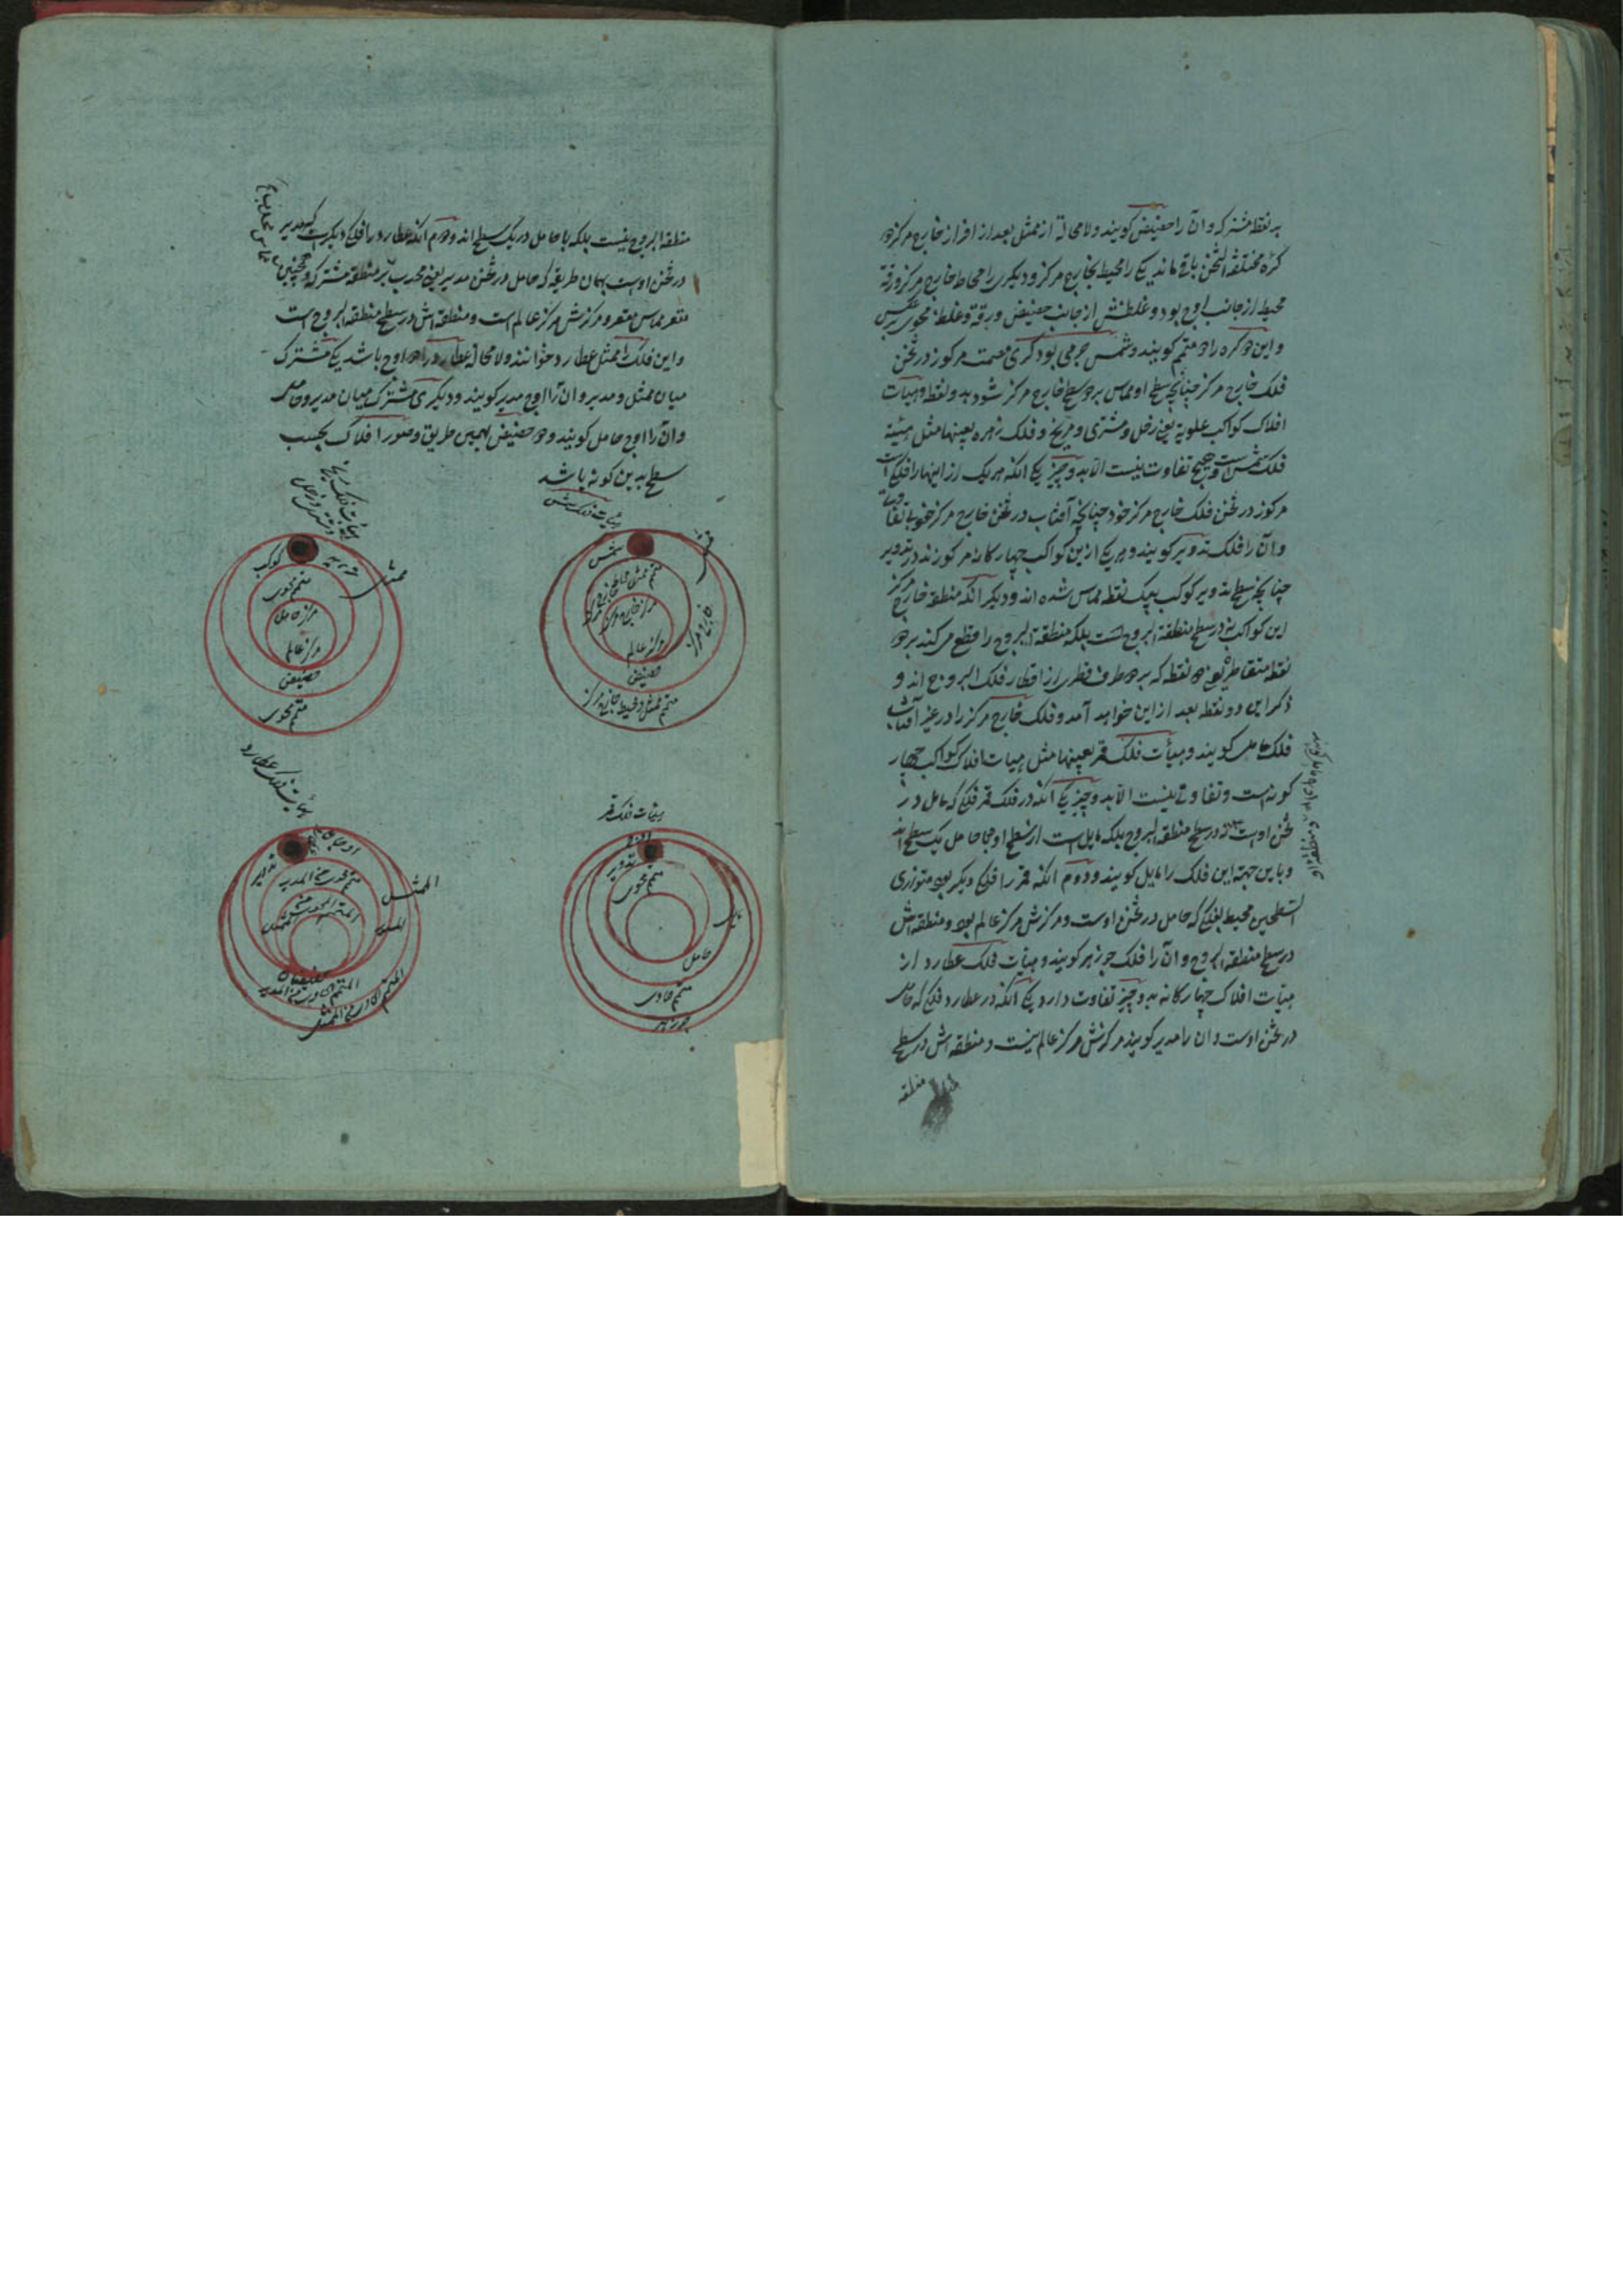 بر نقطه مشترکه و آن را حضیض گویند و لامحاله از ممثل بعد از افراز خارج مرکز دو
کره مختلفة الثخن باقی ماند یکی را محیط بخارج مرکز و دیگری را محاط خارج مرکز و رقة
محیط از جانب اوج بود و غلظتش از جانب حضیض و رقة و غلظ محوی بر عکس
و این دو کره را دو متمم گویند و شمس جرمی بود کری مصمت مرکوز در ثخن
فلک خارج مرکز چنانچه سطح او مماس بر دو سطح خارج مرکز شود بدو نقطه و هیأت
افلاک کواکب علویه یعنی زحل و مشتری و مریخ و فلک زهره بعینها مثل هیئة
فلک شمس است و هیچ تفاوت نیست الا بدو چیز یکی آنکه هر یک را از اینها را فلکی است
مرکوز در ثخن فلک خارج مرکز خود چنانچه آفتاب در ثخن خارج مرکز خود بی تفاوت
و آن را فلک تدویر گویند و هر یک ازین کواکب چهارگانه مرکوزند در تدویر
چنانچه سطح تدویر کوکب بیک نقطه مماس شده اند و دیگر آنکه منطقه خارج مرکز
این کواکب نه در سطح منطقة البروج است بلکه منطقة البروج را قطع می کند بر دو
نقطه متقاطر یعنی دو نقطه که بر دو طرف قطری از اقطار فلک البروج اند و
ذکر این دو نقطه بعد از این خواهد آمد و فلک خارج مرکز را در غیر آفتاب
فلک حامل گویند و هیأت فلک قمر بعینها مثل هیات افلاک کواکب چهار
گونه است و تفاوتی نیست الا بدو چیز یکی آنکه در فلک قمر فلکی که حامل در
ثخن اوست نه در سطح منطقه البروج بلکه مایل است از سطح او و با حامل یک سطح اند
و باین جهة این فلک را مایل گویند و دوم آنکه قمر را فلکی دیگر بود متوازی
السطحین محیط بفلکی که حامل در ثخن اوست و مرکزش مرکز عالم بود و منطقه اش
در سطح منطقه البروج و آن را فلک جوزهر گویند و هیأت فلک عطارد از
هیأت افلاک چهارگانه بدو چیز تفاوت دارد یکی آنکه در عطارد فلکی که حامل
در ثخن اوست و آن را مدیر گویند مرکزش مرکز عالم نیست و منطقه اش در سطح
منطقه
منطقه البروج نیست بلکه با حامل در یک سطح اند و دوم آنکه عطارد را فلکی دیگر است که مدیر
در ثخن اوست بهمان طریقه که حامل در ثخن مدیر یعنی محدب بر منطقه مشترکه و همچنین
مقعر مماس مقعر و مرکزش مرکز عالم است و منطقه اش در سطح منطقه البروج است
و این فلک را ممثل عطارد خوانند و لامحاله عطارد را دو اوج باشد یکی مشترک
میان ممثل و مدیر و آن را اوج مدیر گویند و دیگری مشترک میان مدیر و حامل
و آن را اوج حامل گویند و دو حضیض بهمین طریق و صور افلاک بحسب
سطح بدین گونه باشد
هیأت فلک شمس
شمس
خارج مرکز
مرکز عالم
حضیض
متمم ممثل و محیط خارج مرکز
ممثل
کوکب
متمم محوی
مرکز حامل
مرکز عالم
حضیض
متمم حاوی
هیأت فلک قمر
تدویر
متمم محوی
مایل
حامل
متمم حاوی
جوزهر
هیأت فلک عطارد
تدویر
الممثل
المدیر
حضیضان